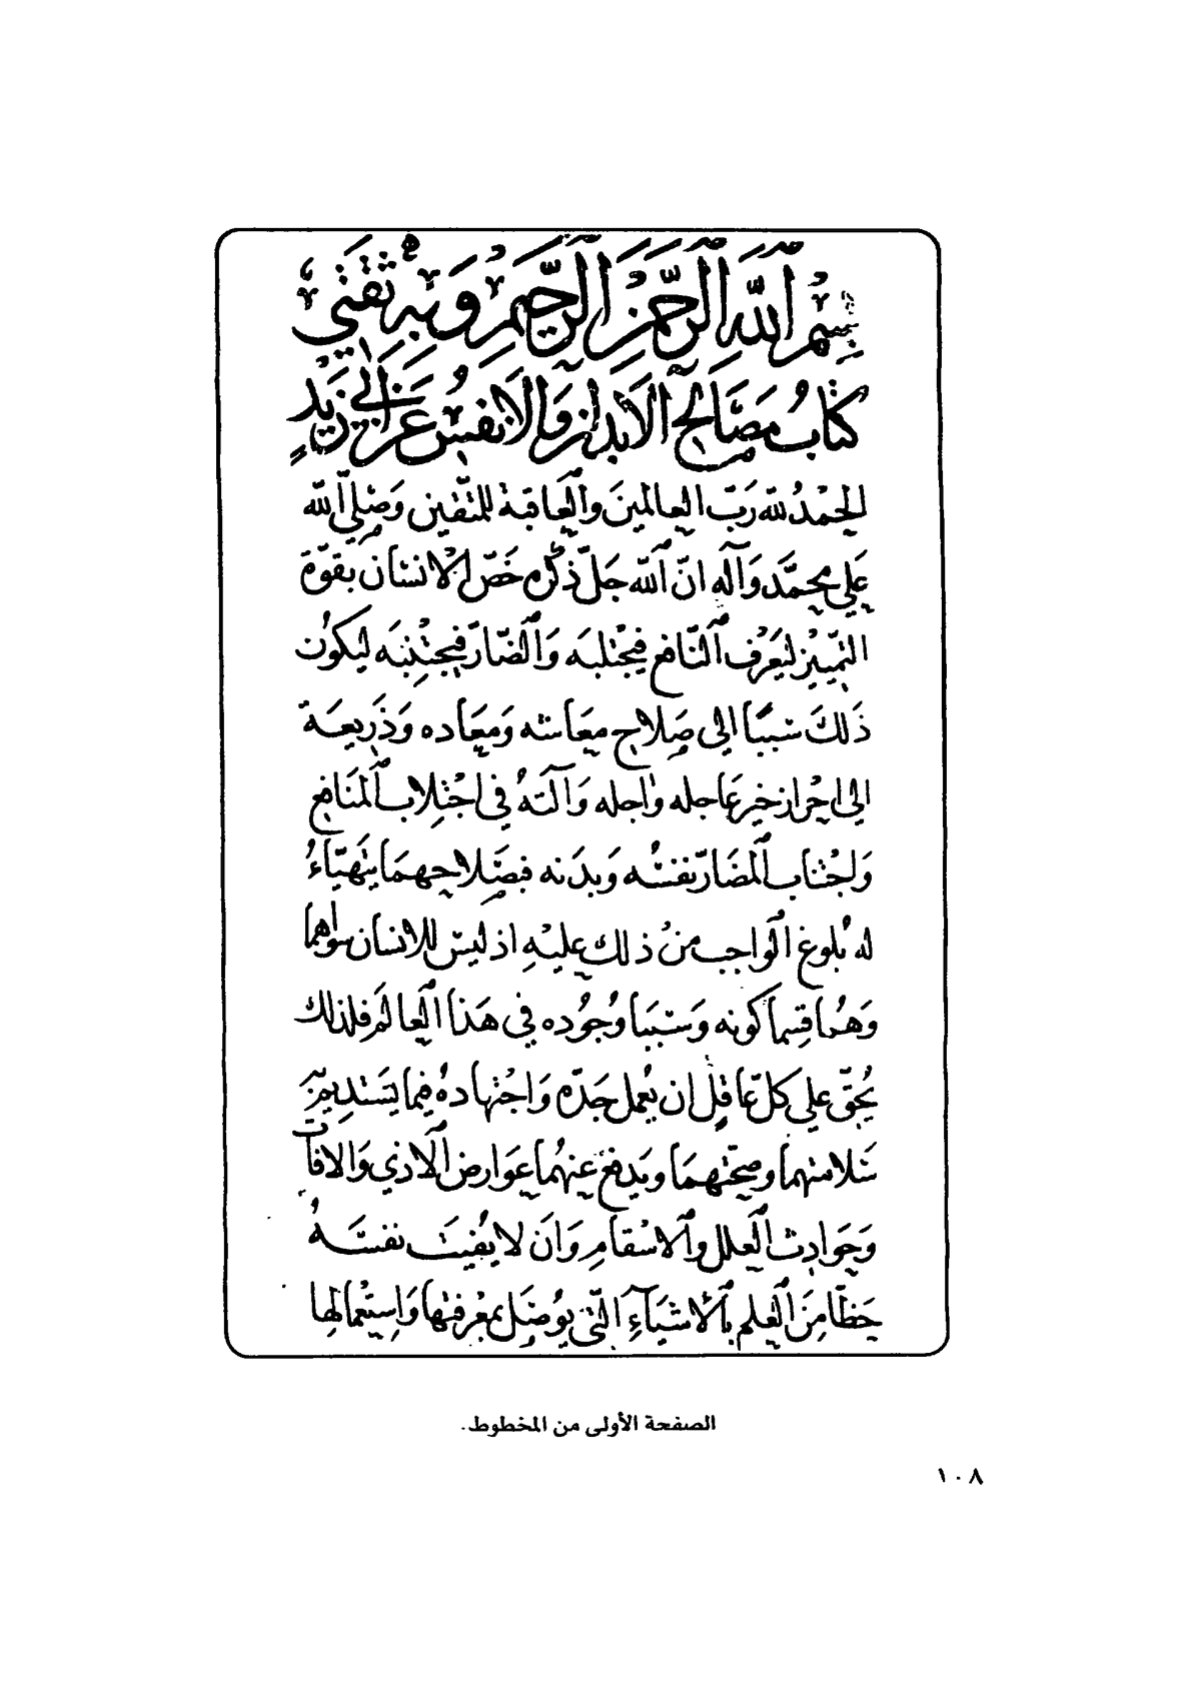 بِسْمِ ٱللَّهِ ٱلرَّحْمَنِ ٱلرَّحِيمِ وَبِهِ ثِقَتِي
كِتَابُ مَصَالِحِ ٱلْأَبْدَانِ وَالْأَنْفُسِ عَنْ أَبِي زَيْدٍ
الحَمْدُ للّه رَبّ العالمينَ وٱلعَاقبة للمتّقين وَصَلّى اللّه
عَلى محمَّد وَآله انّ ٱللّه جَلّ ذكره خَصّ الانسَان بقوّة
التمييز ليَعرْف ٱلنّافع فيجْتلبَه وَٱلضّارّ فيجتنِبَه ليكوُن
ذَلكَ سَببًا الى صَلاح معَاشه وَمعَاده وَذَريعَة
الى احْراز خير عَاجله واجله وَآلتهُ في اجْتِلاب ٱلمنَافع
وَاجْتناب ٱلمضَارّ نفسُه وَبدَنه فبصَلاحهمَا يتهَيّاءُ
له بُلوغ ٱلواجب منُ ذلك عليْهِ اذ ليسَ للانسان سواهما
وَهُما قِسما كونه وَسَببَا وُجُوده في هَذا ٱلعالم فلذلك
يُحقّ على كلّ عاقل ان يُعمل جَدّه وَاجْتهادهُ فيما يَستديم به
سَلامتهما وصِحّتهمَا ويَدفع عنهُما عوَارض ٱلاذى وَالافات
وَحَوادث ٱلعلل وٱلاسْقامِ وَانَ لا يُفيتَ نفسَهُ
حَظّا منَ ٱلعِلم بٱلاشيَآءِ ٱلّتى يوُصَل بمعْرفتها وَاستِعْمالها
الصفحة الأولى من المخطوط.
١٠٨